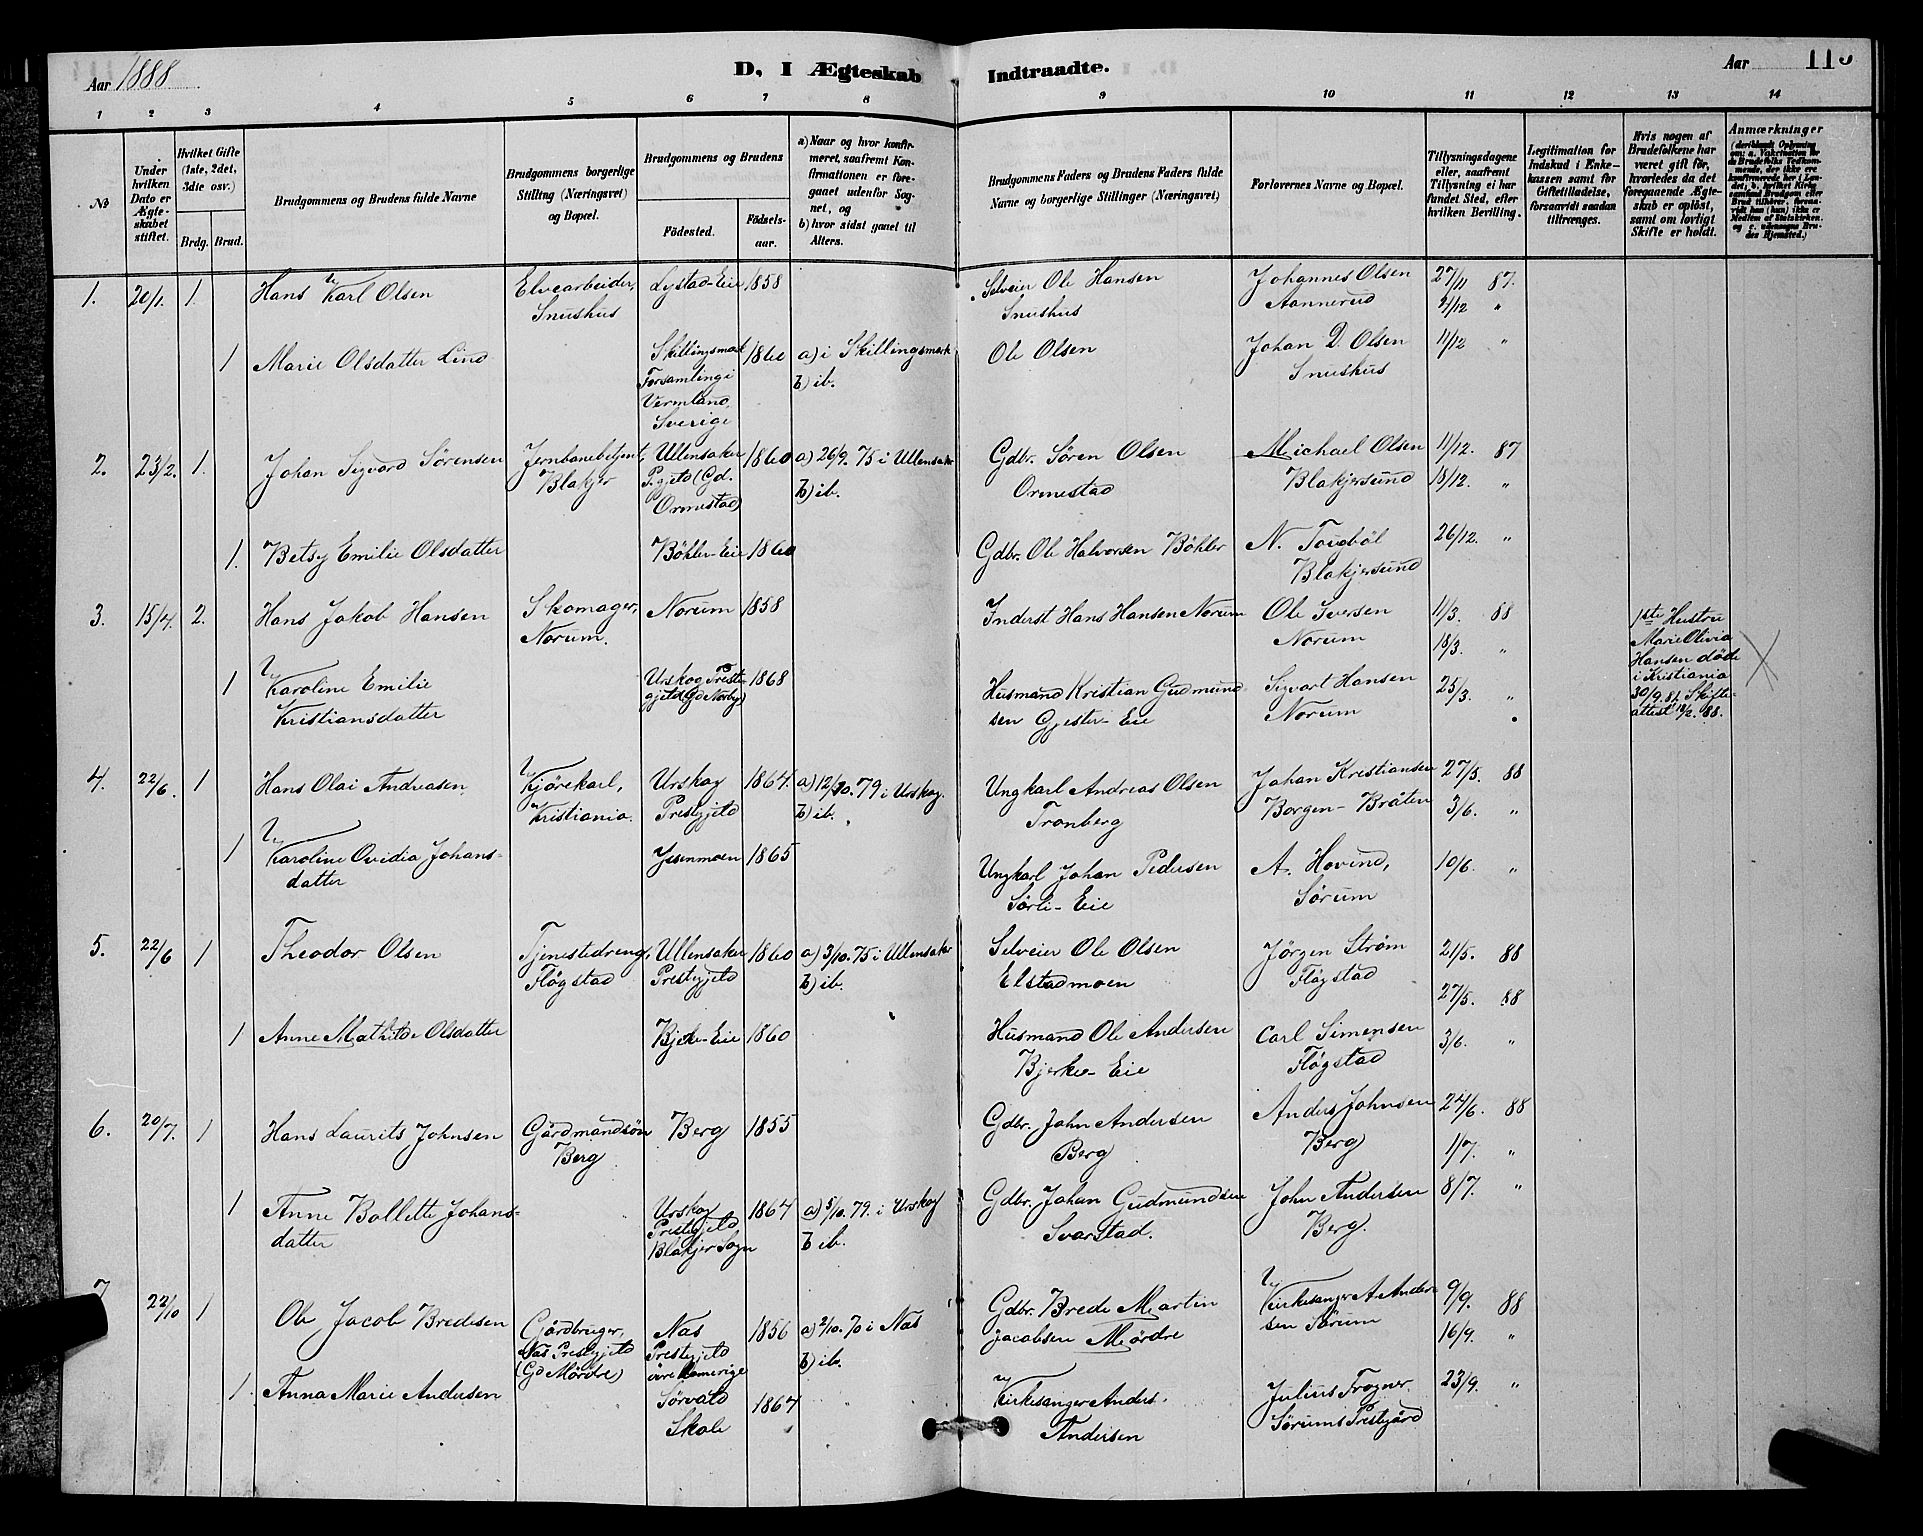 Aar 1888
D, I Ægteskab Indtraadte.
Aar 115
1 2 3 4 5 6 7 8 9 10 11 12 13 14
No
Under hvilken Dato er Ægteskabet stiftet.
Hvilket Gifte (1ste, 2det, 3die osv.)
Brdg. Brud.
Brudgommens og Brudens fulde Navne
Brudgommens borgerlige Stilling (Næringsvei) og Bopæl.
Brudgommens og Brudens
Födested.
Födselsaar.
a) Naar og hvor konfirmeret, saafremt Konfirmationen er foregaaet udenfor Sognet, og
b) hvor sidst gaaet til Alters.
Brudgommens Faders og Brudens Faders fulde Navne og borgerlige Stillinger (Næringsvei)
Forlovernes Navne og Bopæl.
Tillysningsdagene eller, saafremt Tillysning ei har fundet Sted, efter hvilken Bevilling.
Legitimation for Indskud i Enkekassen samt for Giftetilladelse, forsaavidt saadan tiltrænges.
Hvis nogen af Brudefolkene har været gift før, hvorledes da det foregaaende Ægteskab er oplöst, samt om lovligt Skifte er holdt.
Anmærkninger
1. 20/1. 1. Hans Karl Olsen Elvearbeider, Snushus Lystad-Eie 1858
Selveier Ole Hansen Snushus
Johannes Olsen Aannerud
27/11 87.
4/12 "
1 Marie Olsdatter Lind Skillingsmark Forsamling i Vermland, Sverige 1860 a) i Skillingsmark
b) ib.
Ole Olsen
Johan D. Olsen Snushus
11/12 "
2. 23/2. 1. Johan Sigvard Sörensen Jernbanebetjent, Blakjer Ullensaker P.gjeld (Gd. Ormestad) 1860 a) 26/9. 75 i Ullensaker
b) ib.
Gdbr. Sören Olsen Ormestad
Michael Olsen Blakjersund
11/12. 87
18/12. "
1. Betsy Emilie Olsdatter Böhler-Eie 1860
Gdbr. Ole Halvorsen Böhler
N. Toigböl Blakjersund
26/12. "
3. 15/4. 2. Hans Jakob Hansen Skomager, Norum. Norum 1858
Inderst Hans Hansen Norum
Ole Iversen Norum
11/3. 88
18/3. "
1ste Hustru Marie Olivia Hansen döde i Kristiania 30/9. 81. Skifteattest 18/2. 88.
1 Karoline Emilie Kristiansdatter Urskog Prestegjeld (Gd Norby) 1868
Husmand Kristian Gudmundsen Gjester-Eie
Sigvart Hansen Norum
25/3. "
4. 22/6. 1 Hans Olai Andreasen Kjörekarl, Kristiania. Urskog Prestegjeld 1864. a) 12/10. 79 i Urskog.
b) ib.
Ungkarl Andreas Olsen Tronberg
Johan Kristiansen Borgen-Bråten
27/5. 88
3/6. "
1 Karoline Ovidia Johansdatter Jesenmoen 1865
Ungkarl Johan Pedersen Sörli-Eie
A. Hovind, Sörum
10/6. "
5. 22/6 1 Theodor Olsen Tjenestedreng, Flögstad Ullensaker Prestegjeld 1860 a) 3/10. 75 i Ullensaker
b) ib.
Selveier Ole Olsen Elstadmoen
Jörgen Ström Flögstad
21/5. 88
27/5. 88
1 Anne Mathilde Olsdatter Bjerke-Eie 1860
Husmand Ole Andersen Bjerke-Eie
Carl Simensen Flögstad
3/6. "
6. 20/7. 1 Hans Laurits Johnsen Gårdmandsön Berg Berg 1855
Gdbr. John Andersen Berg
Anders Johnsen Berg
24/6. 88
1/7. "
1 Anne Bollette Johansdatter Urskog Prestegjeld, Blakjer Sogn 1864 a) 5/10. 79. i Urskog
b ib.
Gdbr. Johan Gudmundsen Svarstad.
John Andersen Berg.
8/7. "
7 22/10 1 Ole Jacob Bredesen Gårdbruger, Næs Prestegjeld (Gd Mördre) Næs Prestegjeld övre Romerige 1856 a) 2/10. 70 i Næs
b) ib.
Gdbr. Brede Martin Jacobsen Mördre
Kirkesanger A. Andersen Sörum
9/9. 88
16/9. "
1. Anna Marie Andersen Sörvald Skole 1864
Kirkesanger Anders Andersen
Julius Trogner Sörums Prestegård
23/9. "